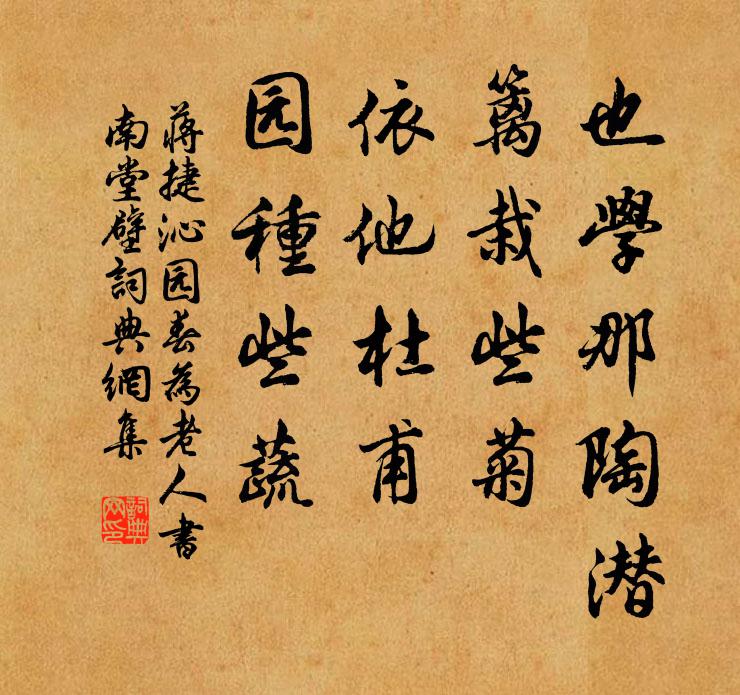 也學那陶潜
籬栽些菊
依他杜甫
园種些蔬
蒋捷沁园春為老人書
南堂壁詞典網集
詞典网印